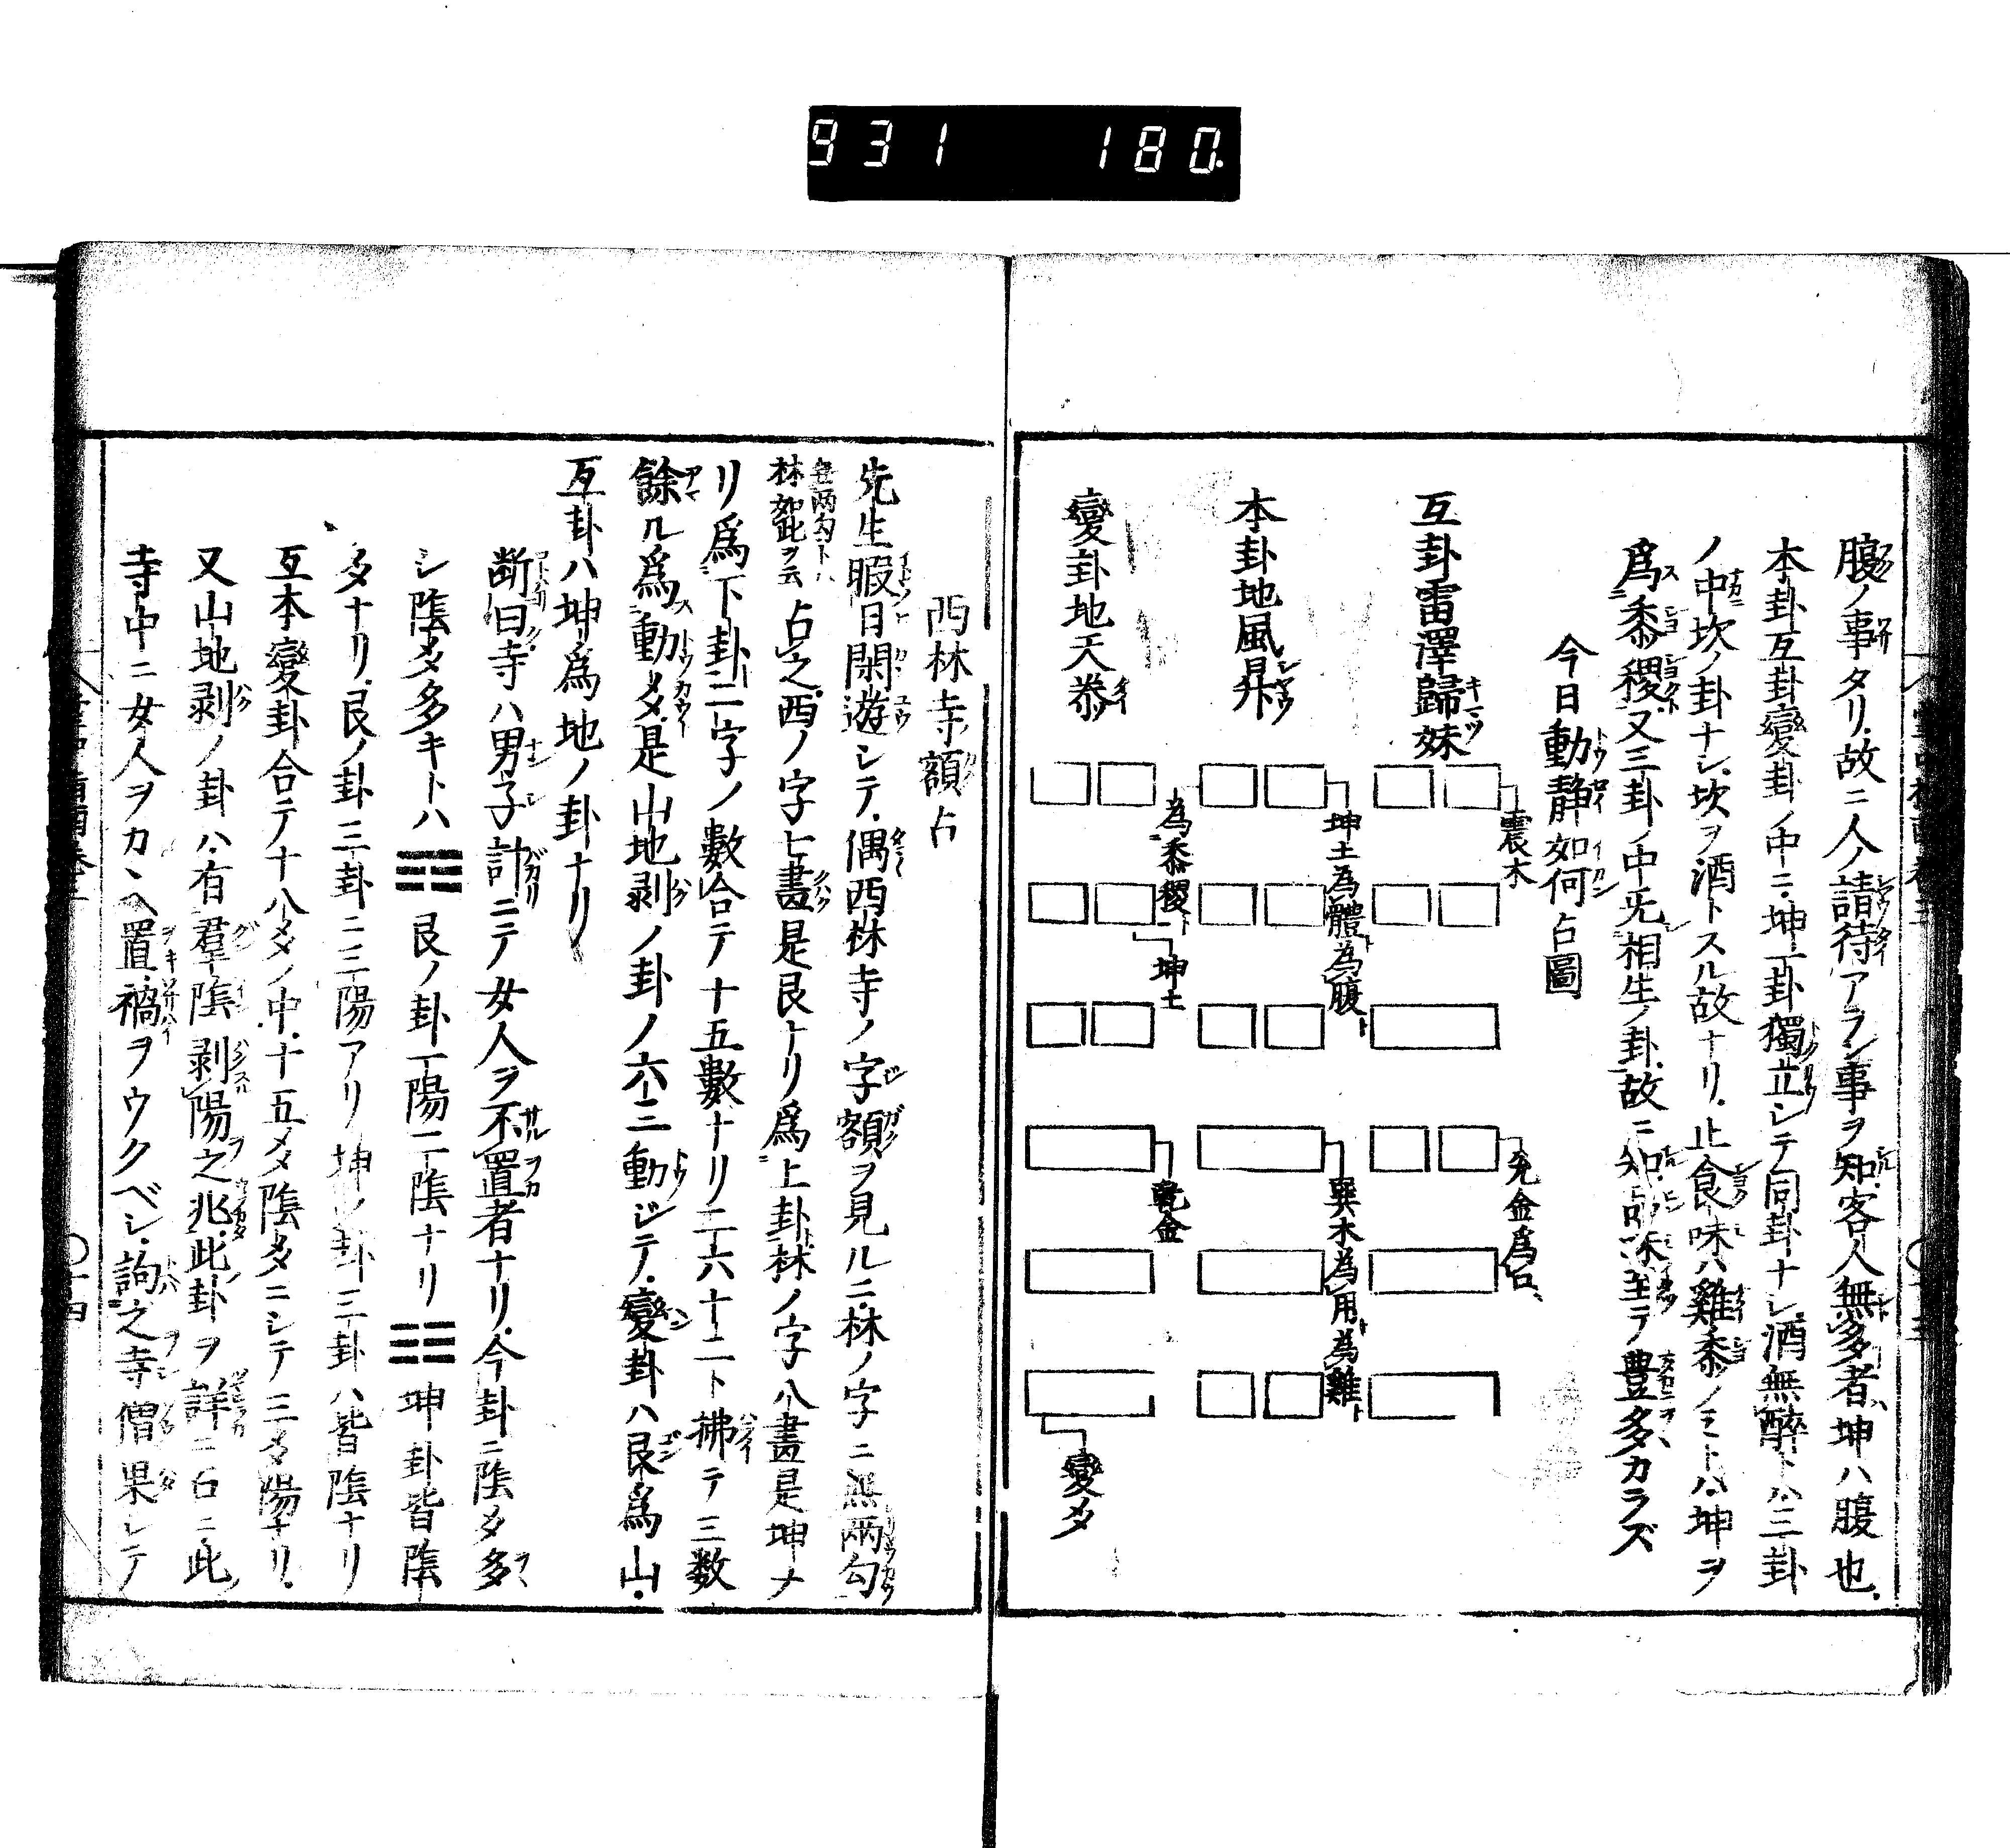 931 180.
腹ノ事タリ故ニ人ノ請待アラン事ヲ知客人無多者坤ハ腹也
本卦互卦變卦ノ中ニ坤一卦獨立シテ同卦ナシ酒無醉トハ三卦
ノ中坎ノ卦ナシ坎ヲ酒トスル故ナリ止食味ハ雞黍ノミトハ坤ヲ
爲黍稷又三卦ノ中旡相生ノ卦故ニ知
至テ豊多カラズ
今日動静如何占圖
互卦雷澤歸妹
震木
兌金爲口
本卦地風昇
坤土為體為腹
巽木為用為雞
變卦地天泰
為黍稷
坤土
乾金
變爻
西林寺額占
先生暇日閑遊シテ偶西林寺ノ字額ヲ見ルニ林ノ字ニ無兩勾
林如此ヲ云占之西ノ字七畫是艮ナリ爲上卦林ノ字八畫是坤ナ
リ爲下卦二字ノ數合テ十五數ナリ二六十二ト拂テ三数
餘ル爲動爻是山地剥ノ卦ノ六三動ジテ變卦ハ艮爲山
互卦ハ坤爲地ノ卦ナリ
断曰寺ハ男子計ニテ女人ヲ不置者ナリ今卦ニ陰爻多
シ陰爻多キトハ☶艮ノ卦一陽二陰ナリ☷坤卦皆陰
爻ナリ艮ノ卦三卦ニ三陽アリ坤ノ卦三卦ハ皆陰ナリ
互本變卦合テ十八爻ノ中十五爻陰爻ニシテ三爻陽ナリ
又山地剥ノ卦ハ有羣陰剥陽之兆此卦ヲ詳ニ占ニ此
寺中ニ女人ヲカヽヘ置禍ヲウクベシ詢之寺僧果シテ